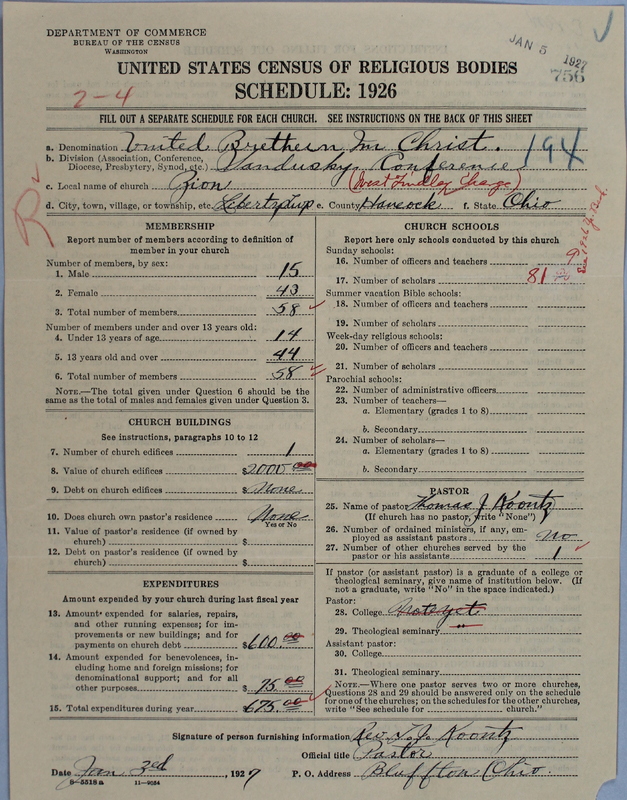 DEPARTMENT OF COMMERCE
BUREAU OF THE CENSUS
WASHINGTON
JAN 5 1927
756
UNITED STATES CENSUS OF RELIGIOUS BODIES
SCHEDULE: 1926
2-4
FILL OUT A SEPARATE SCHEDULE FOR EACH CHURCH. SEE INSTRUCTIONS ON THE BACK OF THIS SHEET
a. Denomination United Brethern In Christ.
194
b. Division (Association, Conference, Diocese, Presbytery, Synod, etc.) Sandusky Conference
c. Local name of church Zion (West Findlay Charge)
d. City, town, village, or township, etc. Liberty Twp e. County Hancock f. State Ohio
MEMBERSHIP
Report number of members according to definition of
member in your church
Number of members, by sex:
1. Male 15
2. Female 43
3. Total number of members 58
Number of members under and over 13 years old:
4. Under 13 years of age 14
5. 13 years old and over 44
6. Total number of members 58
NOTE.—The total given under Question 6 should be the
same as the total of males and females given under Question 3.
CHURCH BUILDINGS
See instructions, paragraphs 10 to 12
7. Number of church edifices 1
8. Value of church edifices $2000.00
9. Debt on church edifices $None
10. Does church own pastor's residence None
Yes or No
11. Value of pastor's residence (if owned by
church) $
12. Debt on pastor's residence (if owned by
church) $
EXPENDITURES
Amount expended by your church during last fiscal year
13. Amount expended for salaries, repairs,
and other running expenses; for im-
provements or new buildings; and for
payments on church debt $600.00
14. Amount expended for benevolences, in-
cluding home and foreign missions; for
denominational support; and for all
other purposes $75.00
15. Total expenditures during year $675.00
CHURCH SCHOOLS
Report here only schools conducted by this church
Sunday schools:
16. Number of officers and teachers 9
17. Number of scholars 81
Summer vacation Bible schools:
18. Number of officers and teachers
19. Number of scholars
Week-day religious schools:
20. Number of officers and teachers
21. Number of scholars
Parochial schools:
22. Number of administrative officers
23. Number of teachers—
a. Elementary (grades 1 to 8)
b. Secondary
24. Number of scholars—
a. Elementary (grades 1 to 8)
b. Secondary
PASTOR
25. Name of pastor Thomas J Koontz
(If church has no pastor, write "None")
26. Number of ordained ministers, if any, em-
ployed as assistant pastors No
27. Number of other churches served by the
pastor or his assistants 1
If pastor (or assistant pastor) is a graduate of a college or
theological seminary, give name of institution below. (If
not a graduate, write "No" in the space indicated.)
Pastor:
28. College Not yet
29. Theological seminary "
Assistant pastor:
30. College
31. Theological seminary
NOTE.—Where one pastor serves two or more churches,
Questions 28 and 29 should be answered only on the schedule
for one of the churches; on the schedules for the other churches,
write "See schedule for church."
Signature of person furnishing information Rev. T. J. Koontz
Official title Pastor
Date Jan 3rd, 1927 P. O. Address Bluffton Ohio.
8—5518a 11—9034